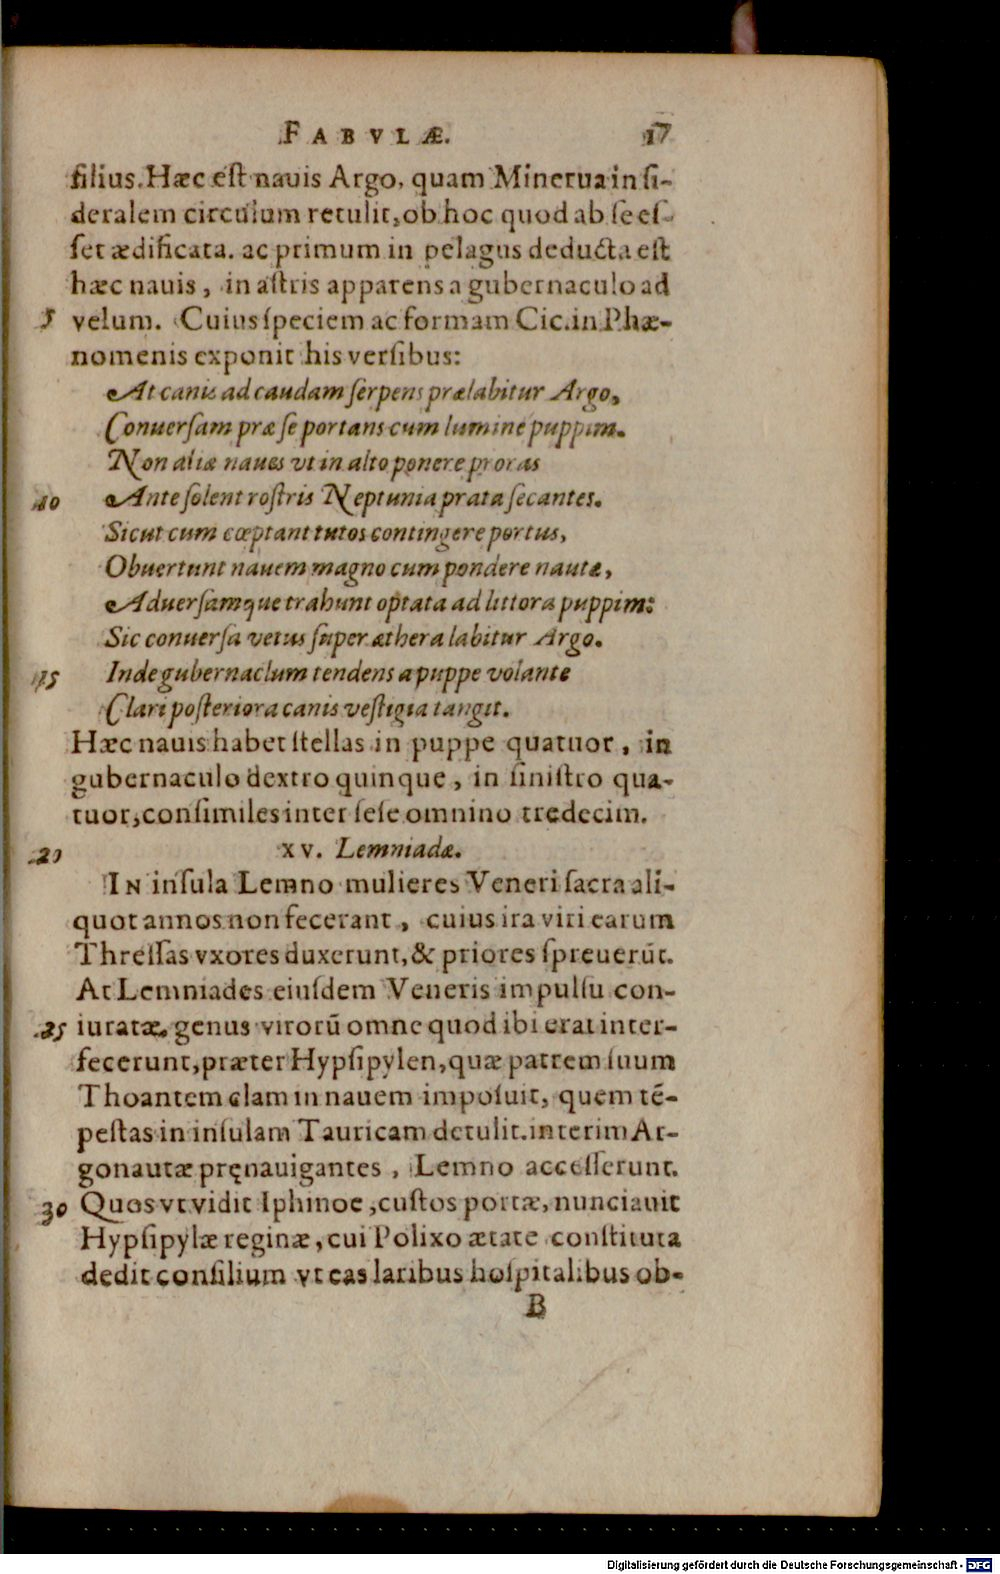 FABVLÆ. 17
filius. Hæc est nauis Argo, quam Minerua in si-
deralem circulum retulit, ob hoc quod ab se es-
set ædificata. ac primum in pelagus deducta est
hæc nauis, in astris apparens a gubernaculo ad
5 velum. Cuius speciem ac formam Cic. in Phæ-
nomenis exponit his versibus:
At canis ad caudam serpens prælabitur Argo,
Conuersam præ se portans cum lumine puppim.
Non aliæ naues vt in alto ponere proras
10 Ante solent rostris Neptunia prata secantes.
Sicut cum cœptant tutos contingere portus,
Obuertunt nauem magno cum pondere nautæ,
Aduersamque trahunt optata ad littora puppim:
Sic conuersa vetus super æthera labitur Argo.
15 Inde gubernaclum tendens a puppe volante
Clari posteriora canis vestigia tangit.
Hæc nauis habet stellas in puppe quatuor, in
gubernaculo dextro quinque, in sinistro qua-
tuor, consimiles inter sese omnino tredecim.
20 XV. Lemniadæ.
IN insula Lemno mulieres Veneri sacra ali-
quot annos non fecerant, cuius ira viri earum
Thressas vxores duxerunt, & priores spreuerūt.
At Lemniades eiusdem Veneris impulsu con-
25 iuratæ, genus virorū omne quod ibi erat inter-
fecerunt, præter Hypsipylen, quæ patrem suum
Thoantem clam in nauem imposuit, quem tē-
pestas in insulam Tauricam detulit. interim Ar-
gonautæ pręnauigantes, Lemno accesserunt.
30 Quos vt vidit Iphinoe, custos portæ, nunciauit
Hypsipylæ reginæ, cui Polixo ætate constituta
dedit consilium vt eas laribus hospitalibus ob-
B
Digitalisierung gefördert durch die Deutsche Forschungsgemeinschaft - DFG